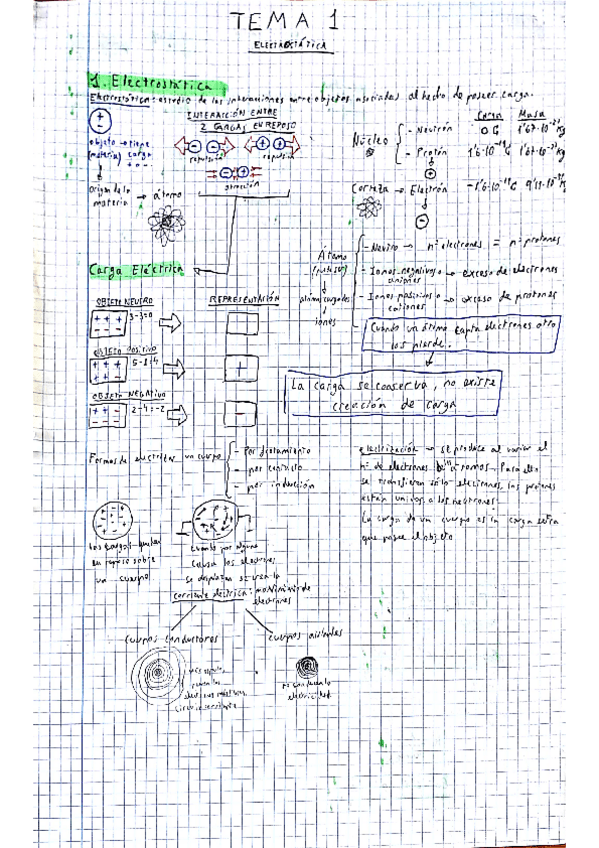 TEMA 1
ELECTROSTÁTICA
1. Electrostática
Electrostática: estudio de las interacciones entre objetos asociados al hecho de poseer carga.
INTERACCIÓN ENTRE
2 CARGAS EN REPOSO
+
-
objeto → tiene
(materia) carga
+ o -
- -
+ +
repulsión
repulsión
- +
atracción
Origen de la
materia → átomo
Carga Masa
Núcleo
- Neutrón 0 C 1'67·10⁻²⁷ Kg
- Protón 1'6·10⁻¹⁹ C 1'67·10⁻²⁷ Kg
Corteza → Electrón -1'6·10⁻¹⁹ C 9'11·10⁻³¹ Kg
-
Átomo
- Neutro → nº electrones = nº protones
- Iones negativos o → exceso de electrones
aniones
- Iones positivos o → exceso de protones
cationes
iones
Cuando un átomo capta electrones otro
los pierde.
La carga se conserva, no existe
creación de carga
Carga Eléctrica
OBJETO NEUTRO
REPRESENTACIÓN
+ + +
- - -
3-3=0
OBJETO POSITIVO
5-1=4
+
OBJETO NEGATIVO
2-4=-2
-
Formas de electrizar un cuerpo
- Por frotamiento
- por contacto
- por inducción
electrización → se produce al variar el
nº de electrones
se transfieren sólo electrones, los protones
están unidos a los neutrones.
La carga de un cuerpo es la carga
que posee el objeto
Las cargas quedan
en reposo sobre
un cuerpo
Cuando por alguna
causa los electrones
se desplazan se crea la
corriente eléctrica: movimiento de
electrones
cuerpos conductores
cuerpos aislantes
no conducen la
electricidad